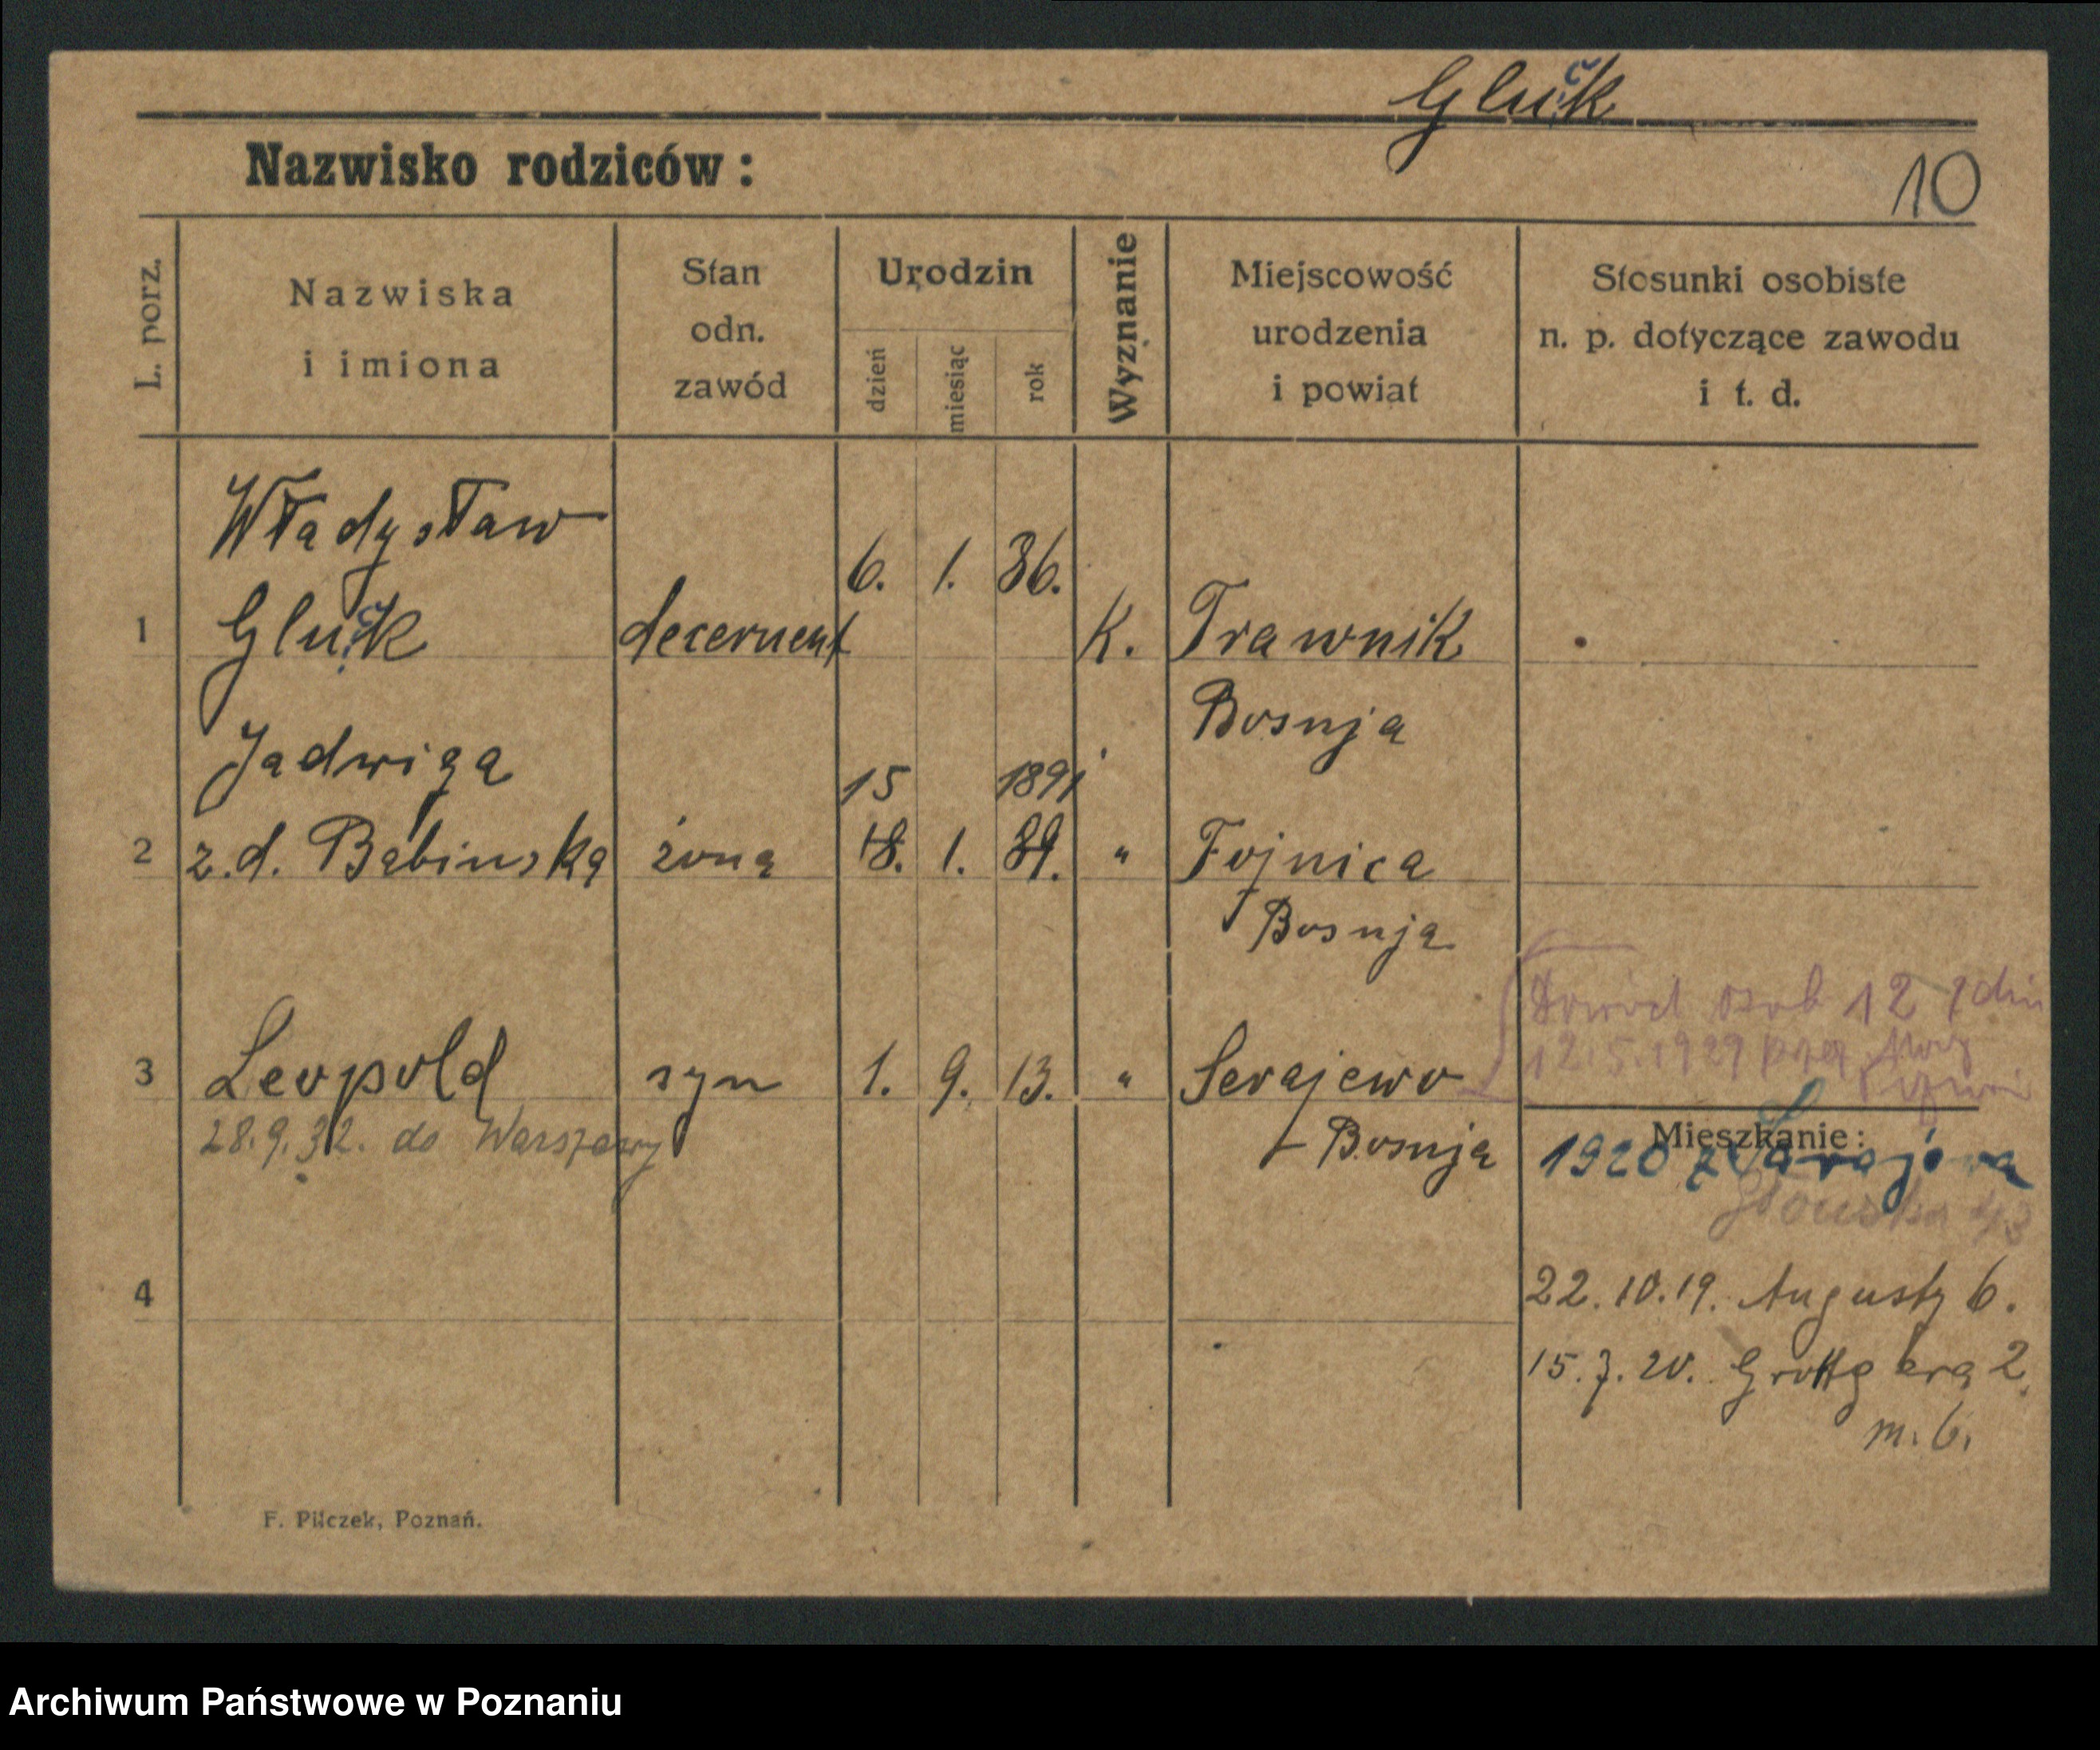 Glučk
Nazwisko rodziców:
10
L. porz.
Nazwiska
i imiona
Stan
odn.
zawód
Urodzin
dzień
miesiąc
rok
Wyznanie
Miejscowość
urodzenia
i powiat
Stosunki osobiste
n. p. dotyczące zawodu
i t. d.
Władysław
6. 1. 86.
1 Glučk decernent K. Trawnik
Bosnja
Jadwiga
15 1891
2 z.d. Babinska żona 18. 1. 89. " Fojnica
Bosnja
Dowód osob 12
12.5.1929
3 Leopold syn 1. 9. 13. " Serajewo
- Bosnja
28.9.32. do Warszawy
Mieszkanie:
1920 z Sarajewa
4
22.10.19. Augusty 6.
15.7.20. Grottgera 2.
m. 6.
F. Pilczek, Poznań.
Archiwum Państwowe w Poznaniu